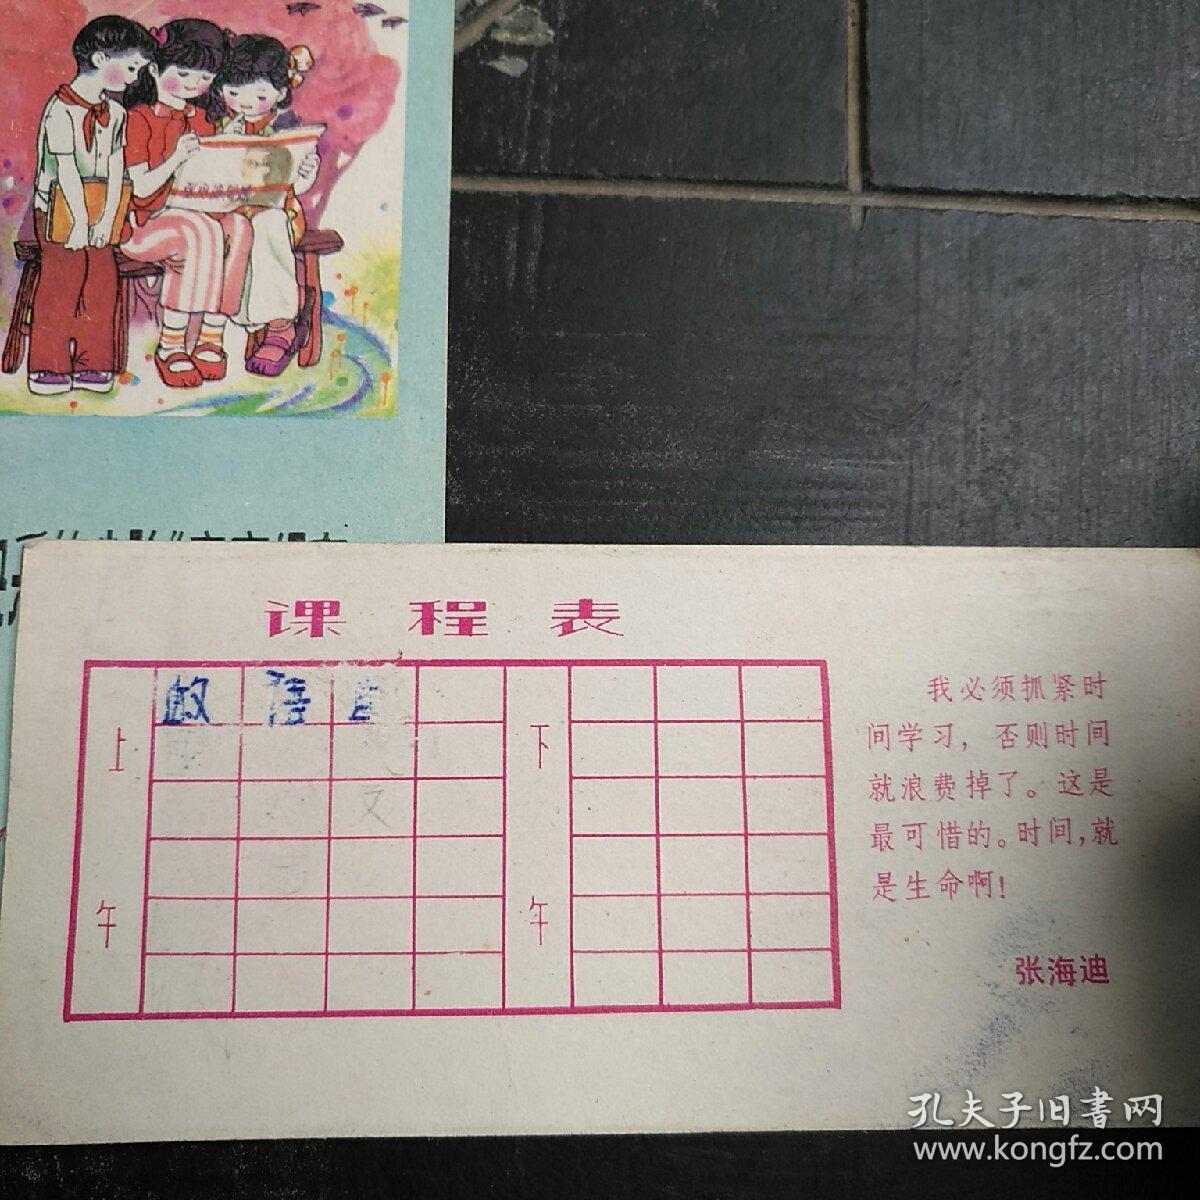 课程表
政 语 自
上
下
文
午
午
我必须抓紧时
间学习，否则时间
就浪费掉了。这是
最可惜的。时间，就
是生命啊！
张海迪
孔夫子旧书网
www.kongfz.com